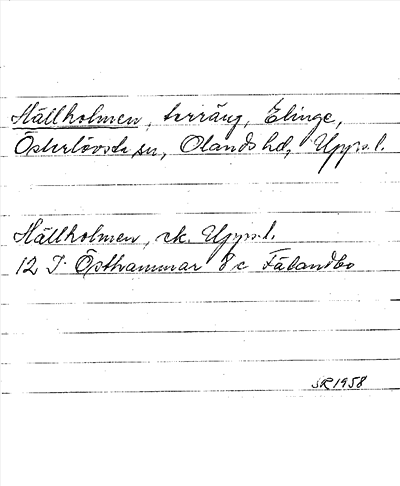 Hällholmen, terräng, Elinge,
Österlövsta sn, Olands hd, Upps.l.
Hällholmen, ek. Upps.l.
12 I Östhammar 8 c Fäbandbo
SR 1958